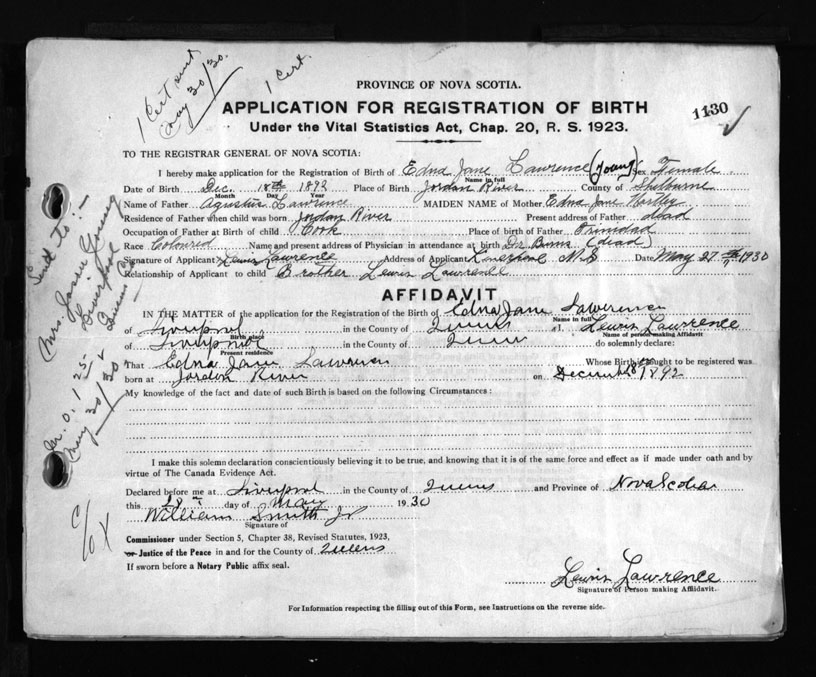 1 Cert sent
May 30/30.
1 Cert.
PROVINCE OF NOVA SCOTIA.
APPLICATION FOR REGISTRATION OF BIRTH
1130
Under the Vital Statistics Act, Chap. 20, R. S. 1923.
TO THE REGISTRAR GENERAL OF NOVA SCOTIA:
I hereby make application for the Registration of Birth of Edna Jane Lawrence (Young) Sex Female
Name in full
Date of Birth Dec. 18th 1892 Place of Birth Jordan River County of Shelburne
Month Day Year
Name of Father Agustus Lawrence MAIDEN NAME of Mother Edna Jane
Residence of Father when child was born Jordan River Present address of Father dead
Occupation of Father at Birth of child Cook Place of birth of Father Trinidad
Race Coloured Name and present address of Physician in attendance at birth Dr Burns (dead)
Signature of Applicant Lewis Lawrence Address of Applicant Liverpool N.S Date May 27th 1930
Relationship of Applicant to child Brother Lewis Lawrence
AFFIDAVIT
IN THE MATTER of the application for Registration of the Birth of Edna Jane Lawrence
Name in full
of Liverpool in the County of Queens I, Lewis Lawrence
Birth place Name of person making Affidavit
of Liverpool in the County of Queens do solemnly declare:
Present residence
That Edna Jane Lawrence Whose Birth is sought to be registered was
born at Jordon River on December 18th 1892
My knowledge of the fact and date of such Birth is based on the following Circumstances:
I make this solemn declaration conscientiously believing it to be true, and knowing that it is of the same force and effect as if made under oath and by
virtue of The Canada Evidence Act.
Declared before me at Liverpool in the County of Queens and Province of Nova Scotia
this 28th day of May 1930
William Smith Jr.
Signature of
Commissioner under Section 5, Chapter 38, Revised Statutes, 1923,
or Justice of the Peace in and for the County of Queens
If sworn before a Notary Public affix seal.
Lewis Lawrence
Signature of Person making Affidavit.
For Information respecting the filling out of this Form, see Instructions on the reverse side.
Send to:—
Mrs. Jessie Young
Liverpool
Queens Co.
M.O. 1.25
May 30/30